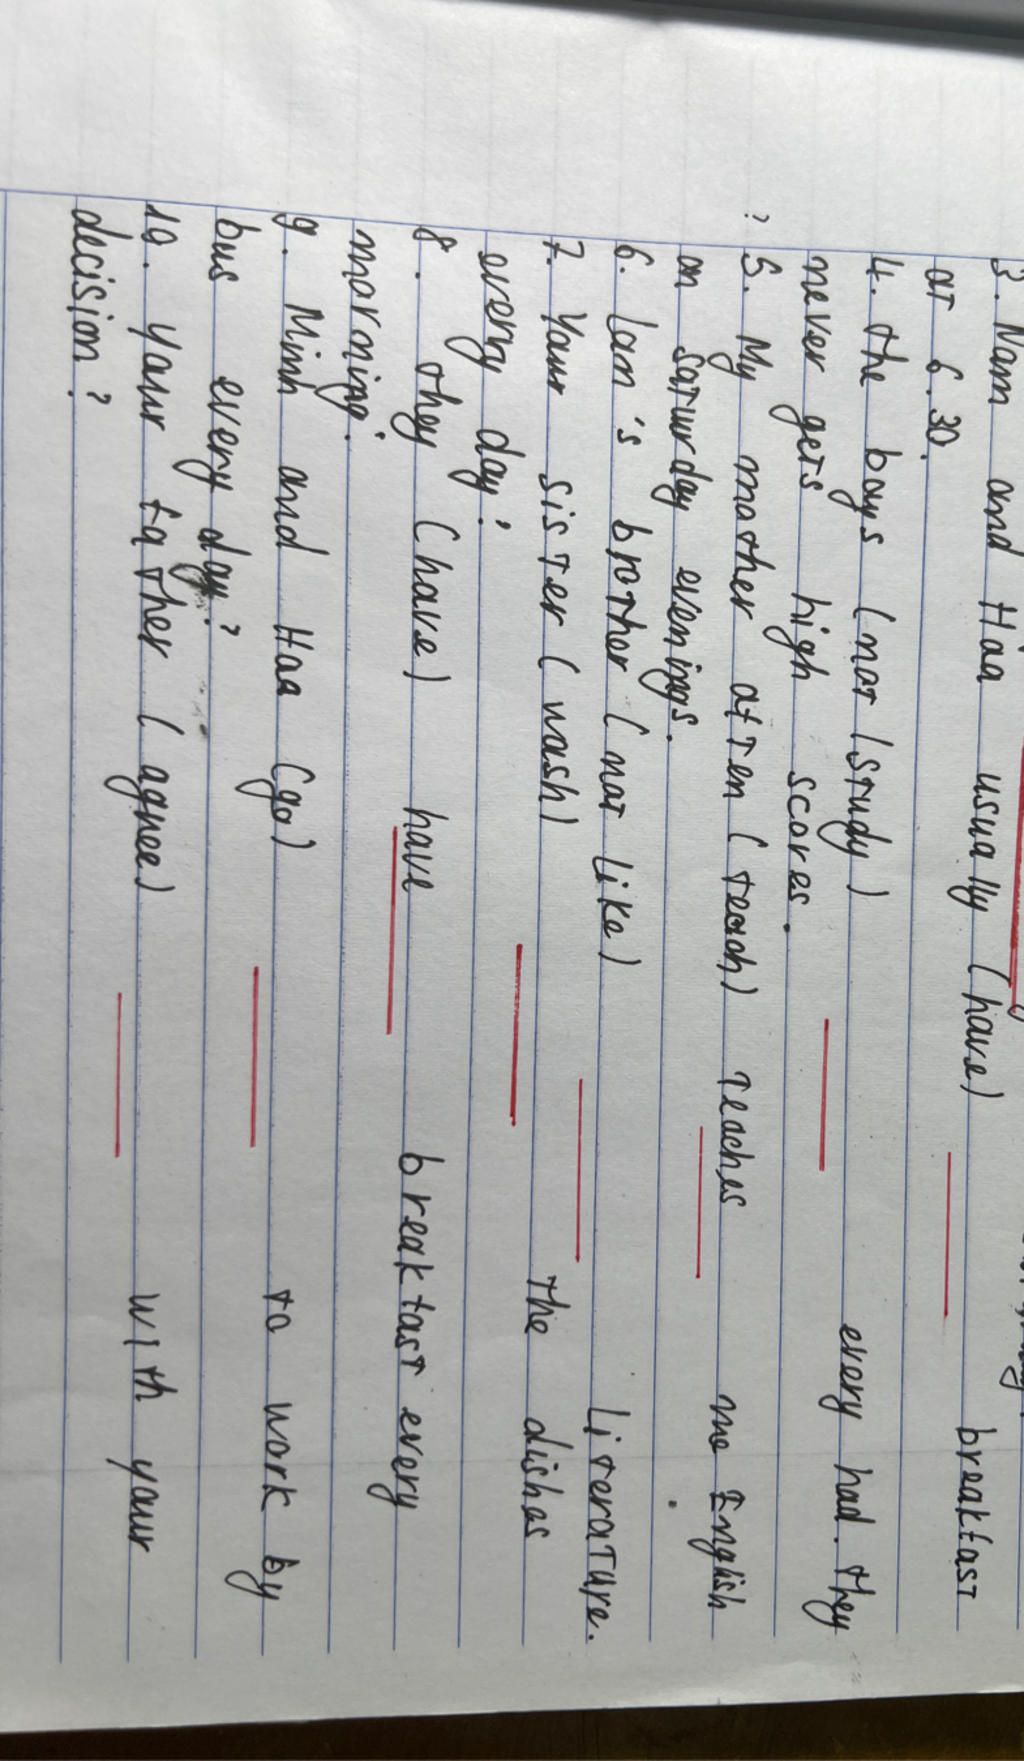 3. Nam and Hoa usually (have) breakfast
at 6.30.
4. the boys (not / study) every had. they
never gets high scores.
5. My mother often (teach) teaches me English
on saturday evenings.
6. Lan's brother (not like) Literature.
7. Your sister (wash) the dishes
every day?
8. they (have) have breakfast every
morning.
9. Minh and Hoa (go) to work by
bus every day?
10. your father (agree) with your
decision?